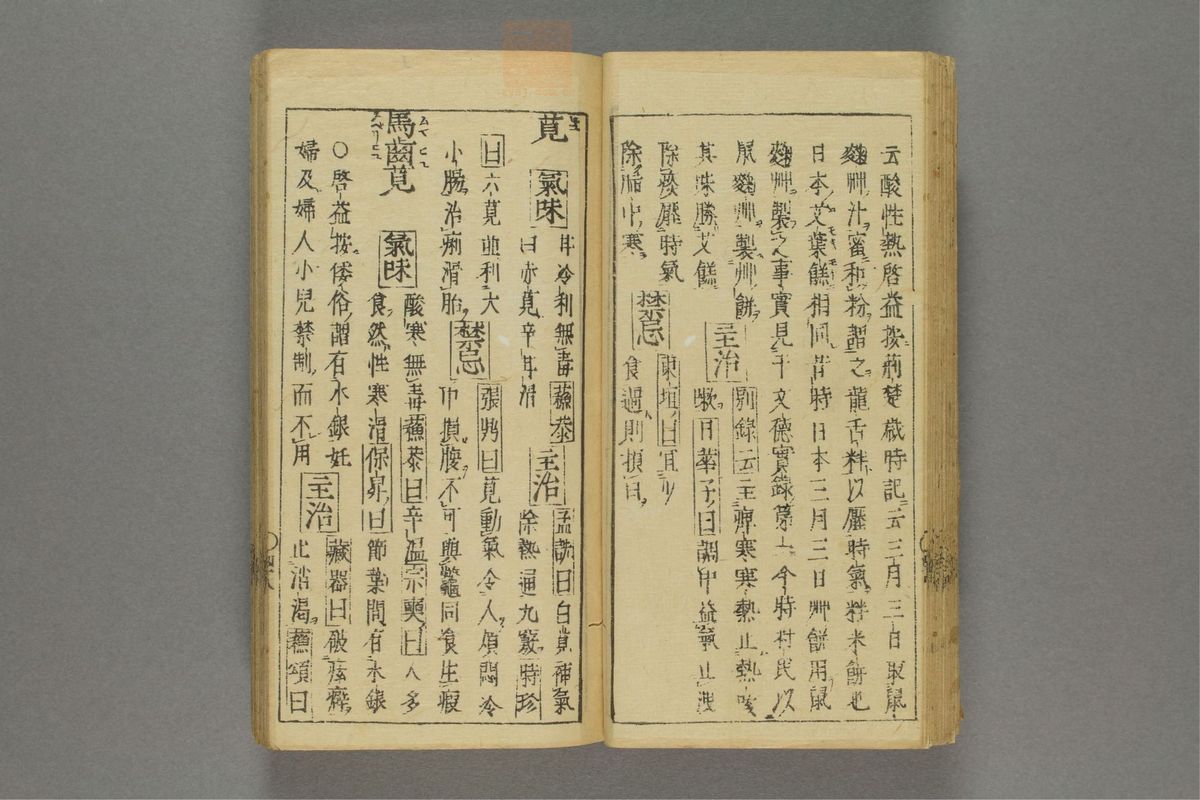 云酸性熱啓益按荊楚歳時記云三月三日取鼠
麹艸汁蜜和粉謂之龍舌䉽以壓時氣䉽米餅也
日本艾葉餻相同昔時日本三月三日艸餅用鼠
麹艸製之事實見于文德實錄第一今時村民以
鼠麹艸製艸餅
其味勝艾餻
主治
別錄云主痺寒寒熱止熱咳
嗽日華子曰調中益氣止洩
除痰壓時氣
除脳中寒
禁忌
東垣曰宜少
食過則損目
莧
氣味
甘冷利無毒蘇恭
曰赤莧辛甘滑
主治
孟詵曰白莧補氣
除熱通九竅時珍
曰六莧並利大
小腸治痢滑胎
禁忌
張鼎曰莧動氣令人煩悶冷
中損腹不可與鼈同食生瘕
馬齒莧
氣味
酸寒無毒蘇恭曰辛温宗奭曰人多
食然性寒滑保昇曰節葉間有水銀
○啓益按倭俗謂有水銀妊
婦及婦人小兒禁制而不用
主治
藏器曰破痃癖
止消渴蘇頌曰